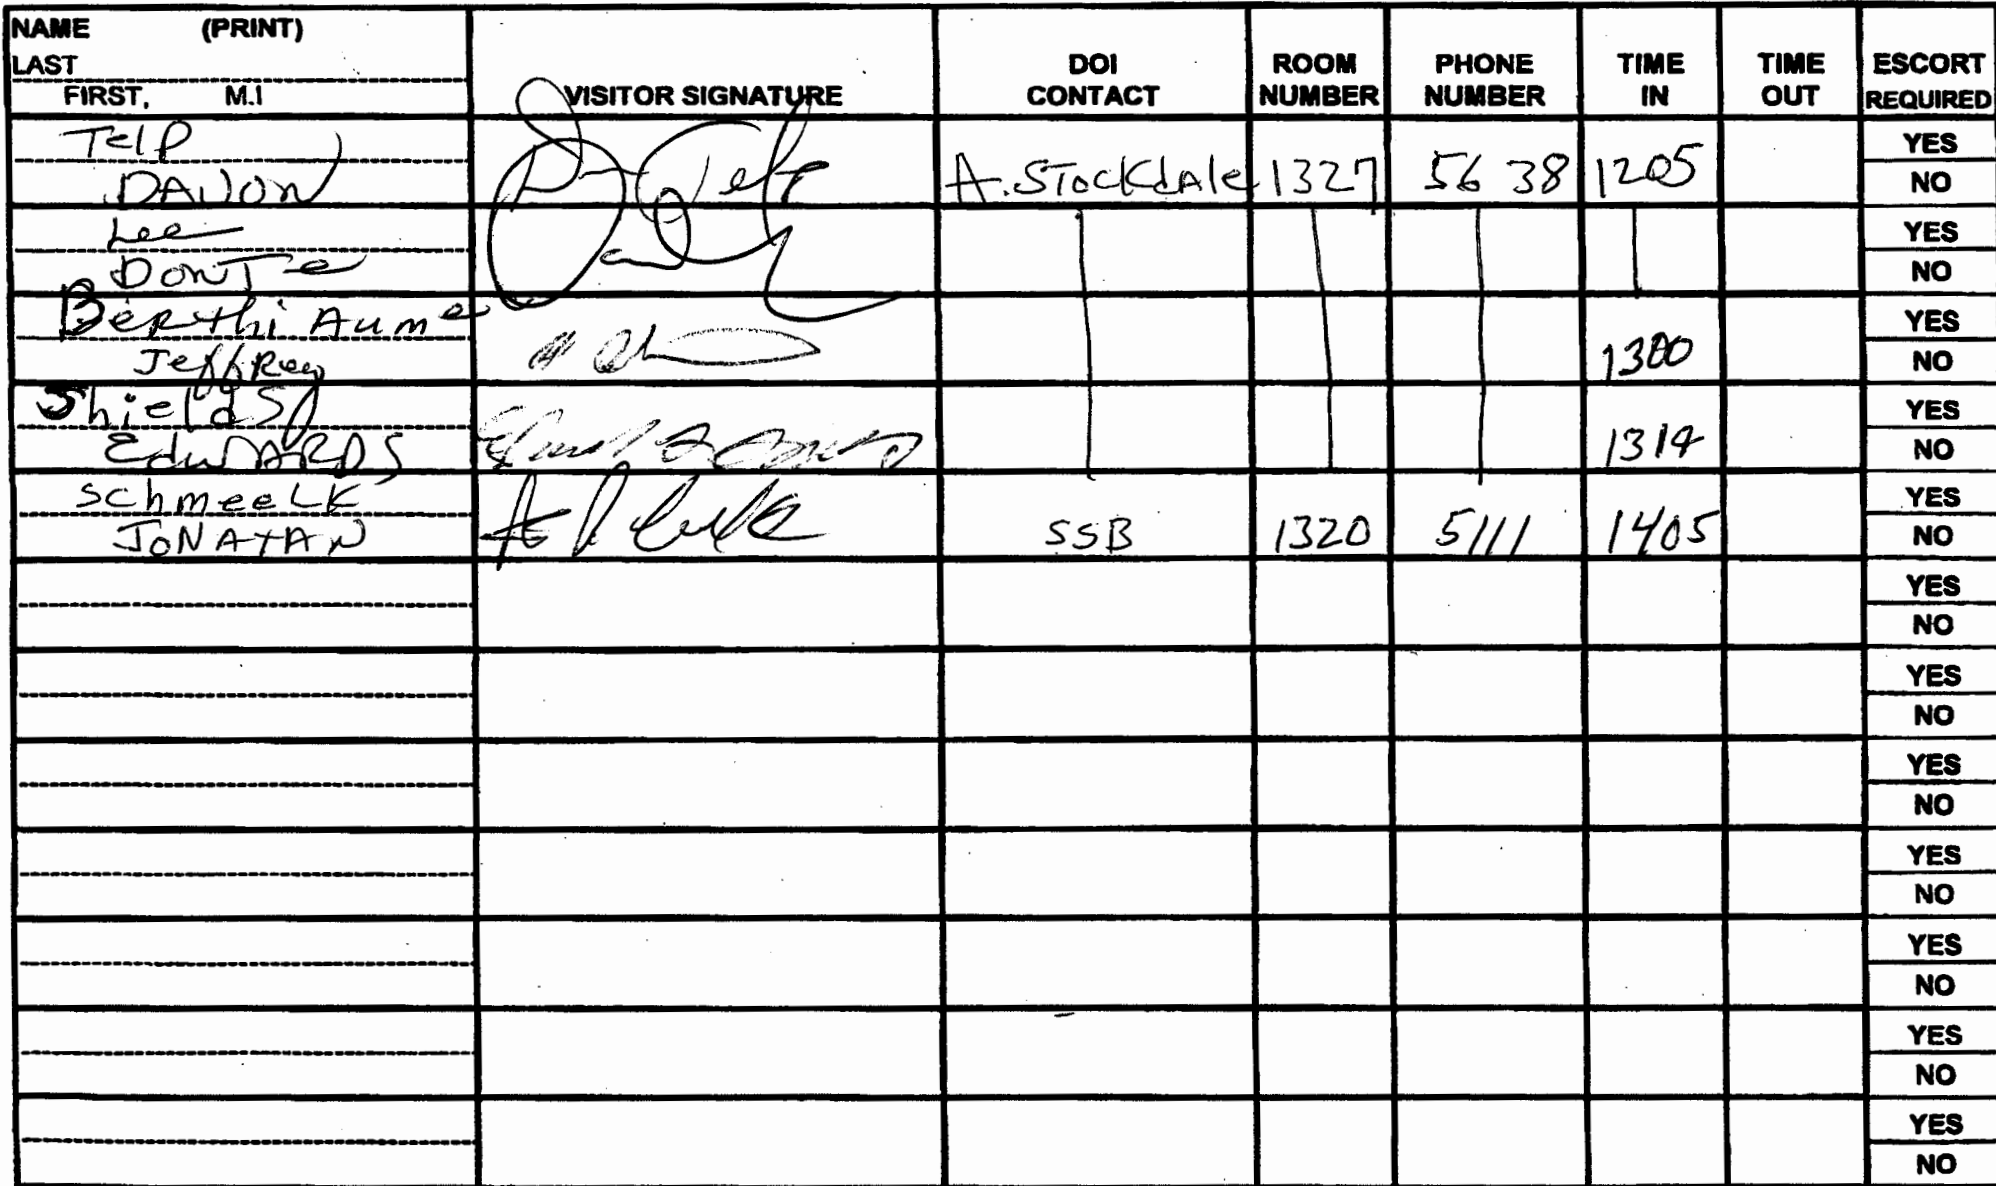 NAME (PRINT)
LAST
FIRST, M.I
VISITOR SIGNATURE
DOI
CONTACT
ROOM
NUMBER
PHONE
NUMBER
TIME
IN
TIME
OUT
ESCORT
REQUIRED
Telp
DAVON
A. STOCKdAle 1327 56 38 1205
YES
NO
Lee
DONTe
YES
NO
BeRthi Aume
Jeffrey
1300
YES
NO
Shields
EdwARDS
1314
YES
NO
SchmeeLK
JONATAN
SSB 1320 5111 1405
YES
NO
YES
NO
YES
NO
YES
NO
YES
NO
YES
NO
YES
NO
YES
NO